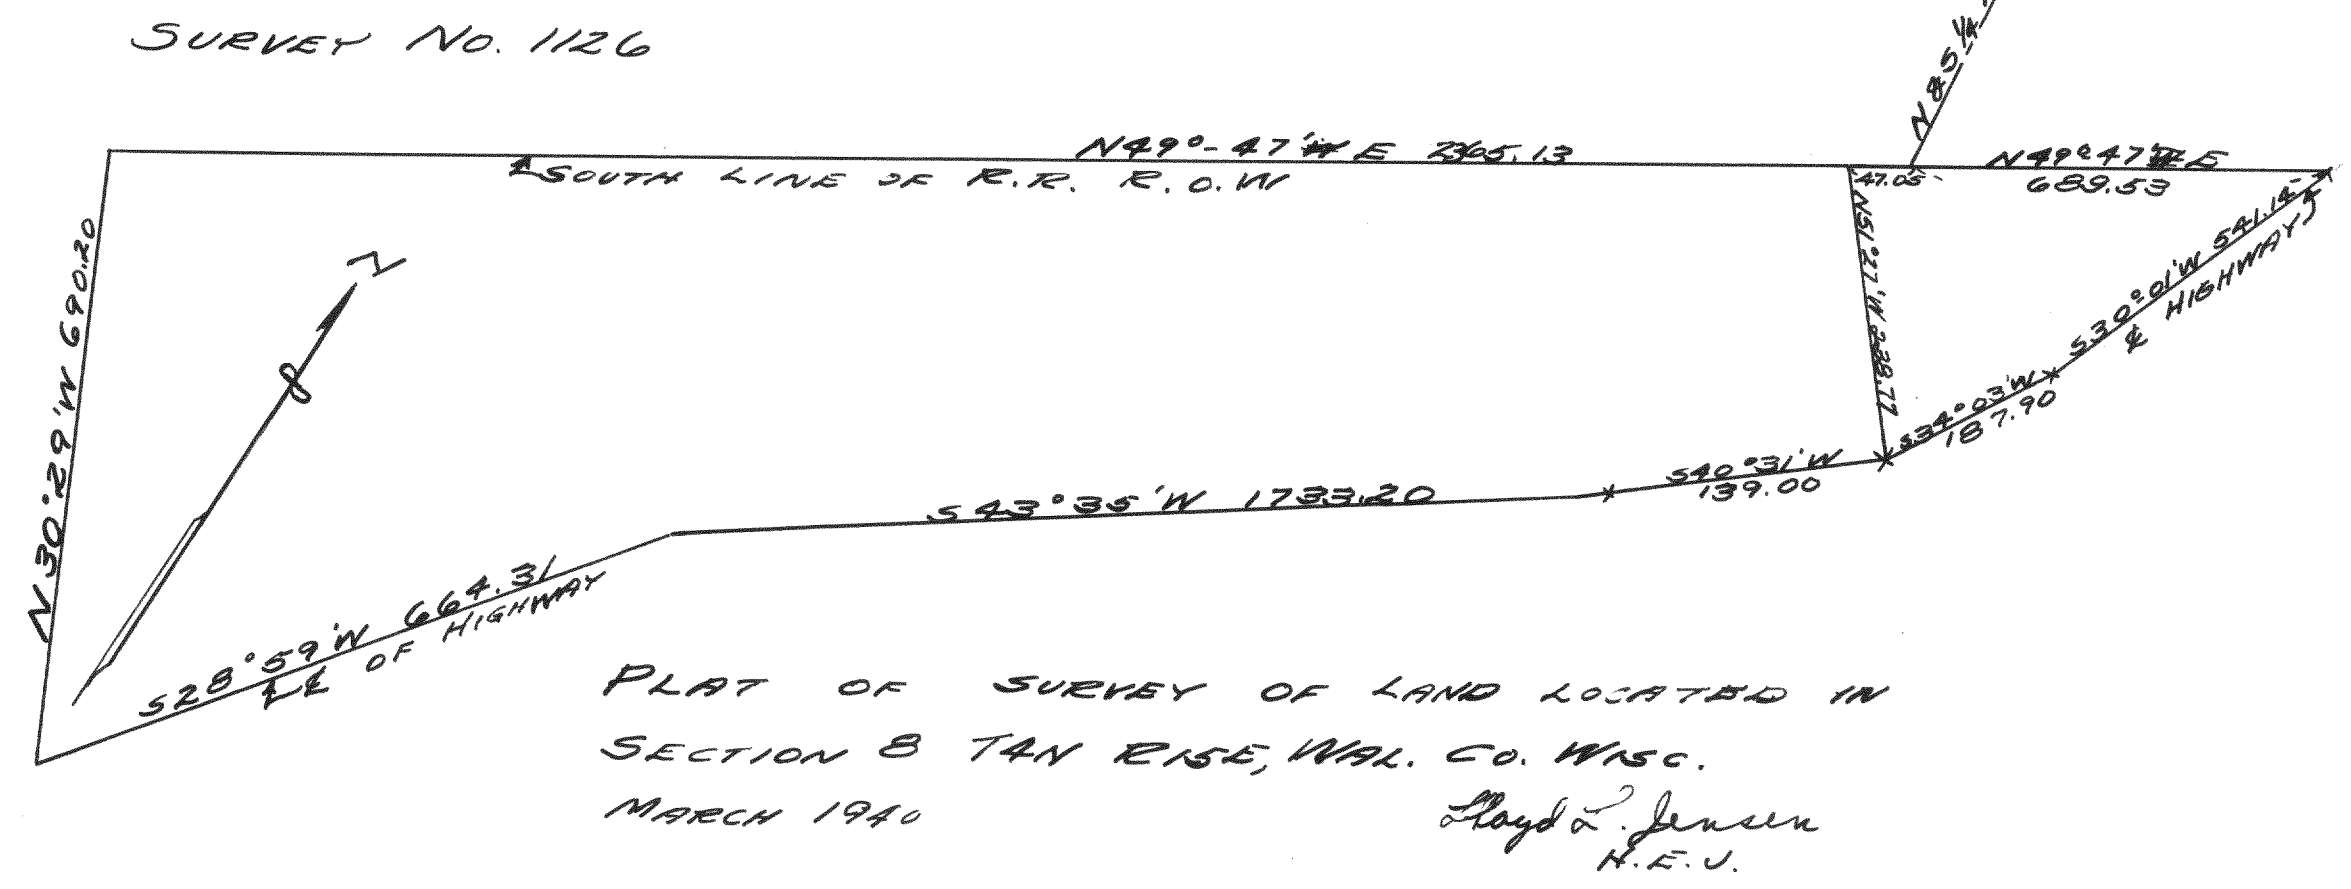 SURVEY No. 1126
N & S 1/4
N49°-47' E 2365.13
SOUTH LINE OF R.R. R.O.W
47.05
N49°47' E
689.53
N30°29'W 690.20
N
N51°27'W 288.77
S30°01'W 541.14
℄ HIGHWAY
S34°03'W
187.90
S40°31'W
139.00
S43°35'W 1733.20
S28°59'W 664.31
℄ OF HIGHWAY
PLAT OF SURVEY OF LAND LOCATED IN
SECTION 8 T4N R15E, WAL. CO. WISC.
MARCH 1940
Lloyd L. Jensen
H.E.J.